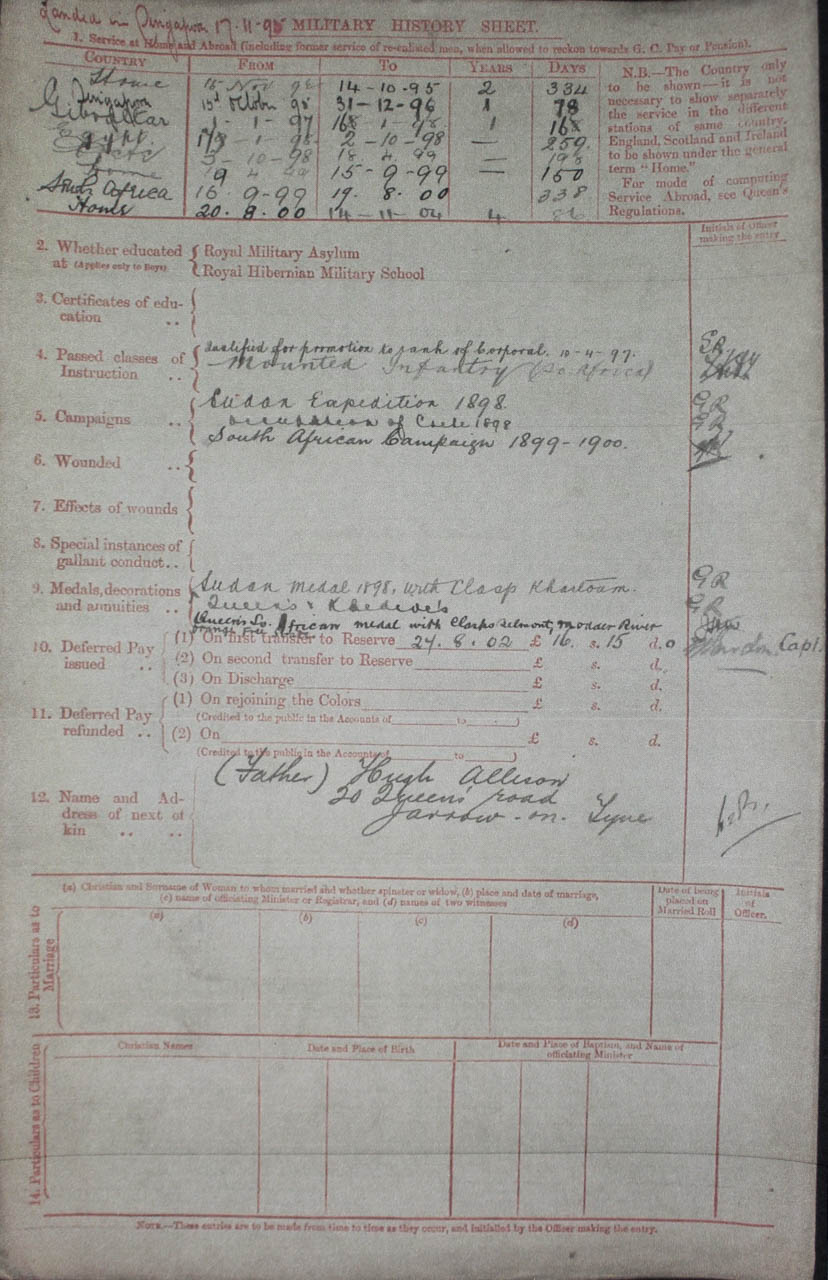 Landed in Singapore 17-11-95 MILITARY HISTORY SHEET.
1. Service at Home and Abroad (including former service of re-enlisted men, when allowed to reckon towards G. C. Pay or Pension).
COUNTRY FROM TO YEARS DAYS
Home 15 Nov 14-10-95 2 334
Singapore 15th October 95 31-12-96 1 78
Gibraltar 1-1-97 1 168
Egypt 1-98 2-10-98 — 259
Crete 3-10-98 18 4 99 — 198
Home 19 4 99 15-9-99 — 150
South Africa 16. 9-99 19. 8. 00 338
Home 20. 8. 00 14-11-04 4
N.B.—The Country only
to be shown—it is not
necessary to show separately
the service in the different
stations of same country.
England, Scotland and Ireland
to be shown under the general
term "Home."
For mode of computing
Service Abroad, see Queen's
Regulations.
Initials of Officer
making the entry
2. Whether educated at (Applies only to Boys) Royal Military Asylum
Royal Hibernian Military School
3. Certificates of edu-
cation ..
4. Passed classes of Instruction .. Qualified for promotion to rank of Corporal. 10-4-97. GR
Mounted Infantry (So. Africa)
5. Campaigns .. Sudan Expedition 1898. GR
Occupation of Crete 1898 GR
South African Campaign 1899-1900.
6. Wounded ..
7. Effects of wounds
8. Special instances of
gallant conduct..
9. Medals, decorations and annuities .. Sudan medal 1898, with Clasp Khartoum. GR
Queen's & Khedives GR
Queen's So. African medal with Clasps Belmont, Modder River
10. Deferred Pay issued .. (1) On first transfer to Reserve 24. 8. 02 £ 16. s. 15 d. 0 Capt.
(2) On second transfer to Reserve £ s. d.
(3) On Discharge £ s. d.
11. Deferred Pay refunded .. (1) On rejoining the Colors £ s. d.
(Credited to the public in the Accounts of to )
(2) On £ s. d.
(Credited to the public in the Accounts of to )
12. Name and Ad-
dress of next of
kin .. ..
(Father) Hugh Allison
20 Queen's road
Jarrow-on-Tyne
13. Particulars as to Marriage
(a) Christian and Surname of Woman to whom married and whether spinster or widow, (b) place and date of marriage,
(c) name of officiating Minister or Registrar, and (d) names of two witnesses
Date of being
placed on
Married Roll
Initials
of
Officer.
(a) (b) (c) (d)
14. Particulars as to Children
Christian Names Date and Place of Birth Date and Place of Baptism, and Name of
officiating Minister
NOTE.—These entries are to be made from time to time as they occur, and initialled by the Officer making the entry.